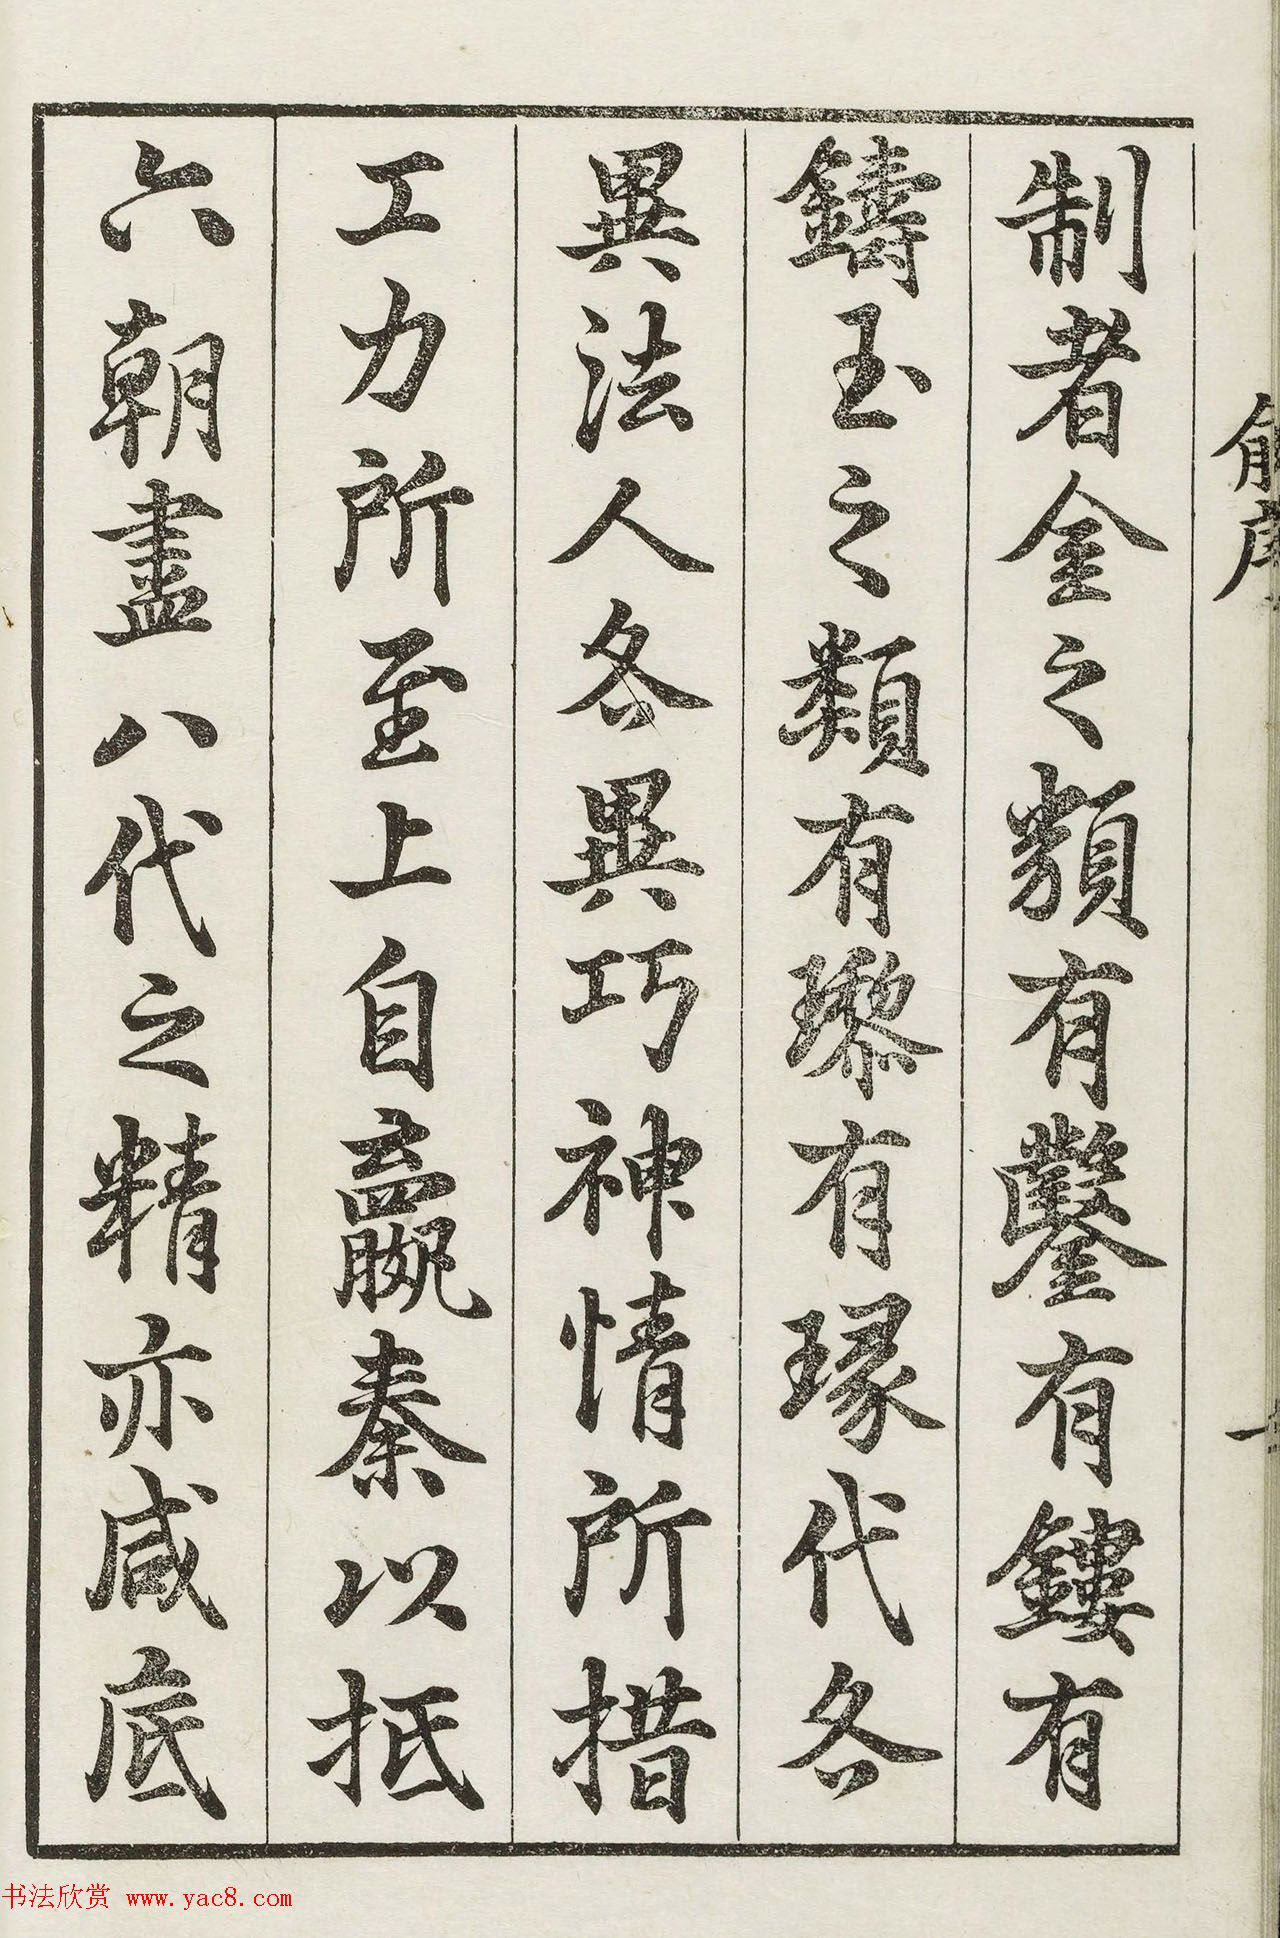 制者金之類有鑿有鏤有
鑄玉之類有瓈有瑑代各
異法人各異巧神情所措
工力所至上自嬴秦以抵
六朝盡八代之精亦咸底
书法欣赏 www.yac8.com